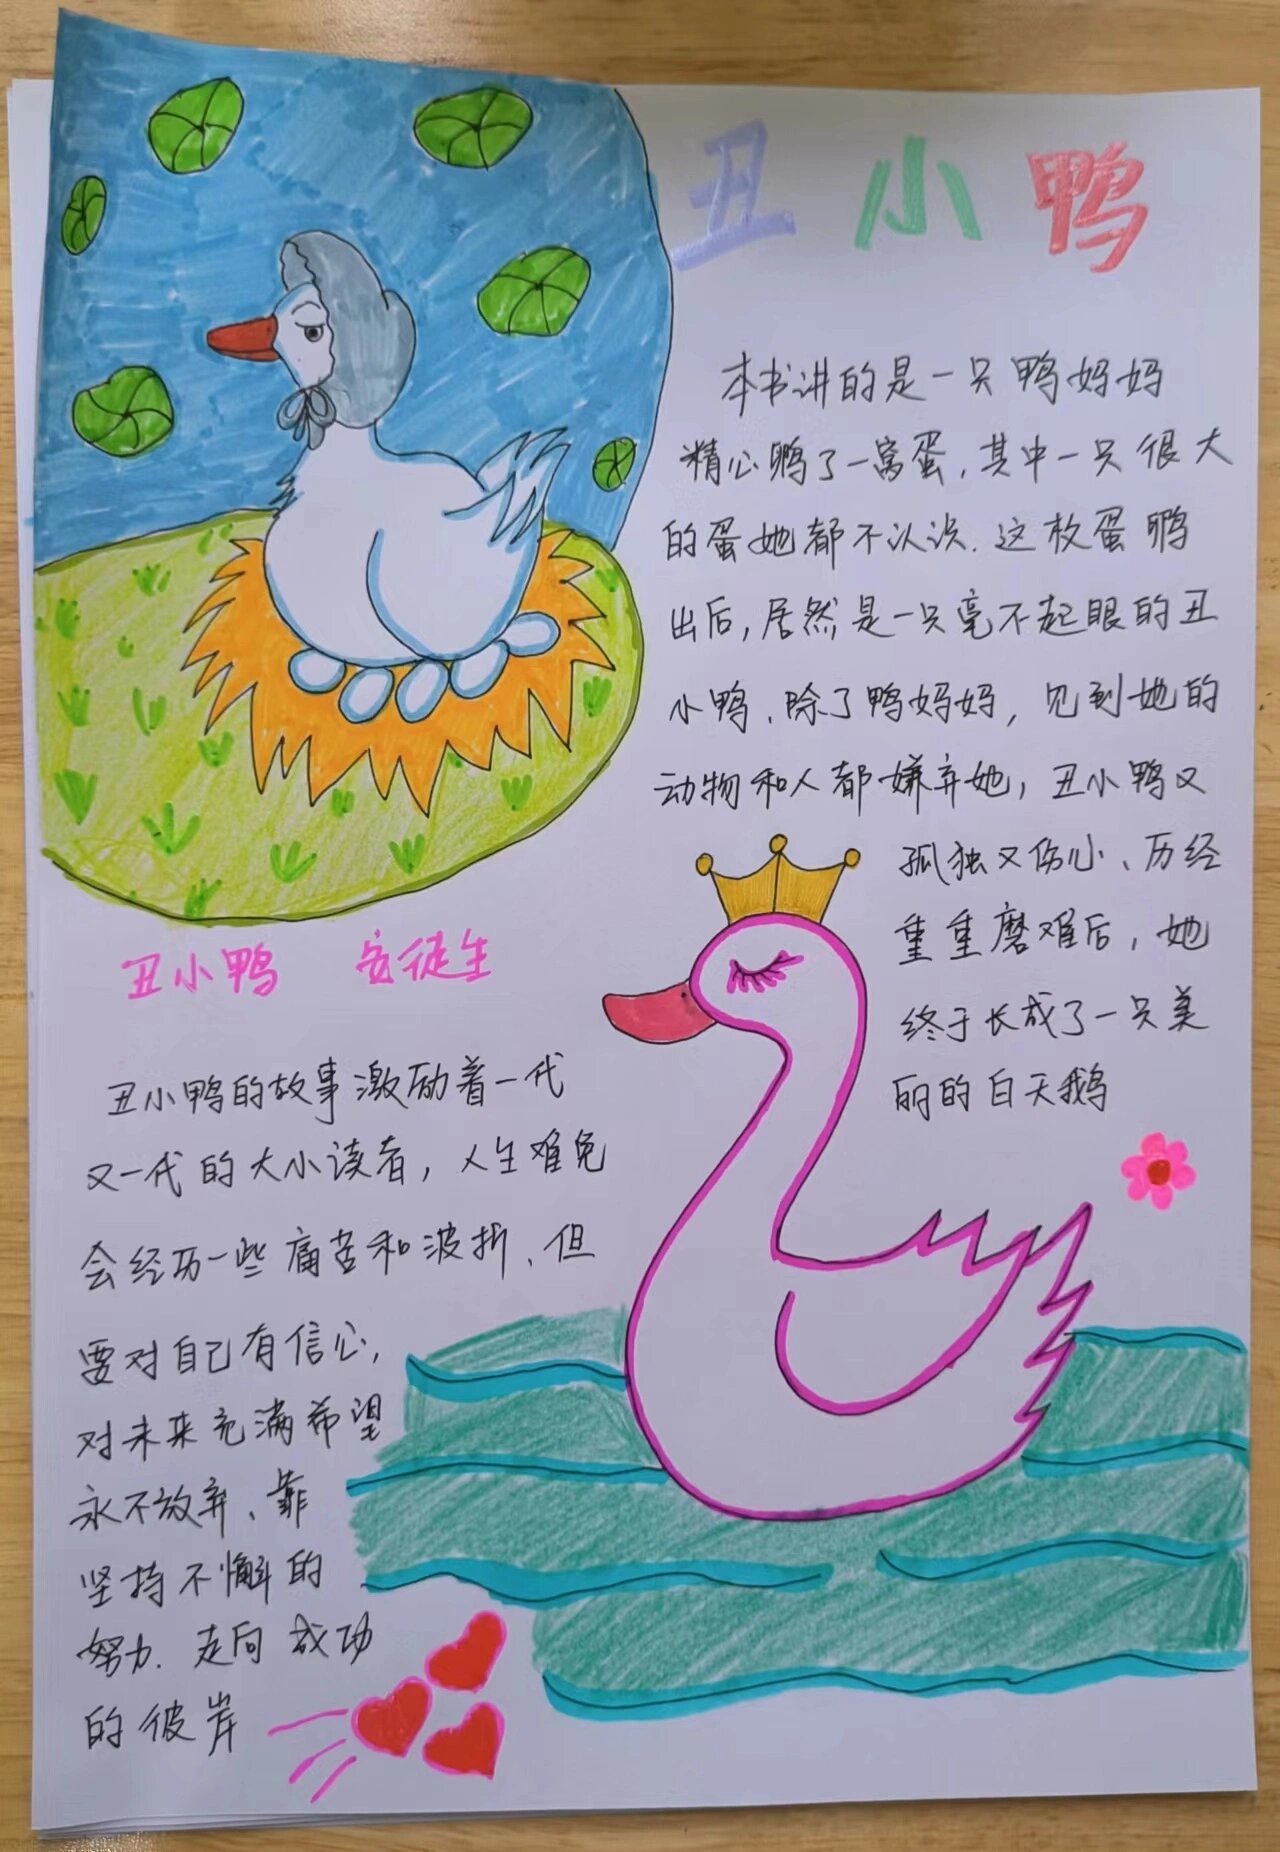 丑小鸭
本书讲的是一只鸭妈妈
精心鸭了一窝蛋,其中一只很大
的蛋她都不认识.这枚蛋鸭
出后,居然是一只毫不起眼的丑
小鸭、除了鸭妈妈,见到她的
动物和人都嫌弃她,丑小鸭又
孤独又伤心、历经
重重磨难后,她
终于长成了一只美
丽的白天鹅
丑小鸭 安徒生
丑小鸭的故事激励着一代
又一代的大小读者,人生难免
会经历一些痛苦和波折、但
要对自己有信心,
对未来充满希望
永不放弃、靠
坚持不懈的
努力.走向成功
的彼岸